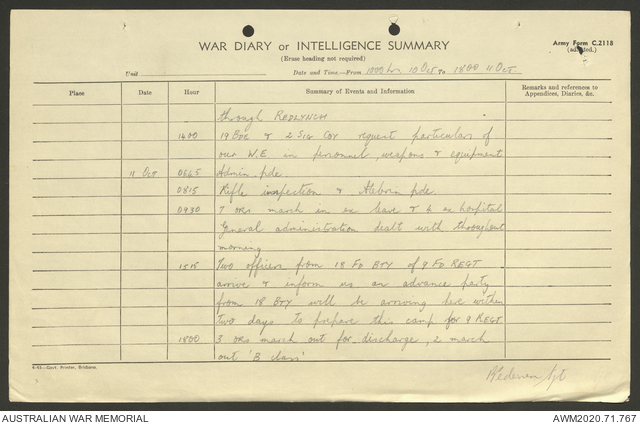 WAR DIARY or INTELLIGENCE SUMMARY
Army Form C.2118
(adapted)
(Erase heading not required)
Unit
Date and Time.—From 1000 hrs. 10 Oct to 1800 11 Oct
Place Date Hour Summary of Events and Information Remarks and references to Appendices, Diaries, &c.
through REDLYNCH
1400 19 BDE & 2 SIG COY request particulars of
our W.E in personnel, weapons & equipment
11 Oct 0645 Admin. pde.
0815 Rifle inspection & Atebrin pde.
0930 7 ORs march in ex leave & 4 ex hospital
General administration dealt with throughout
morning
1515 Two officers from 18 FD BTY of 9 FD REGT
arrive & inform us an advance party
from 18 BTY will be arriving here within
two days to prepare this camp for 9 REGT.
1800 3 ORs march out for discharge, 2 march
out 'B class'
4-43—Govt. Printer, Brisbane.
AUSTRALIAN WAR MEMORIAL
AWM2020.71.767